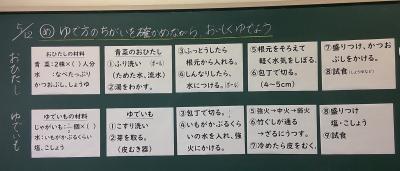 5/12 め ゆで方のちがいを確かめながら、おいしくゆでよう
おひたし
おひたしの材料
青菜:2株×( )人分
水 :なべたっぷり
かつおぶし、しょうゆ
青菜のおひたし
①ふり洗い
(ため水、流水)
②湯をわかす。
③ふっとうしたら
根元から入れる。
④しんなりしたら、
水につける。
⑤根元をそろえて
軽く水気をしぼる。
⑥包丁で切る。
(4~5cm)
⑦盛りつけ、かつお
ぶしをかける。
⑧試食
ゆでいも
ゆでいもの材料
じゃがいも: 個×( )
水:いもがかぶるくらい
塩、こしょう
ゆでいも
①こすり洗い
②芽を取る。
(皮むき器)
③包丁で切る。
④いもがかぶるくら
いの水を入れ、強
火にかける。
⑤強火→中火→弱火
⑥竹ぐしが通る
→ざるにうつす。
⑦冷めたら皮をむく。
⑧盛りつけ
塩・こしょう
⑨試食